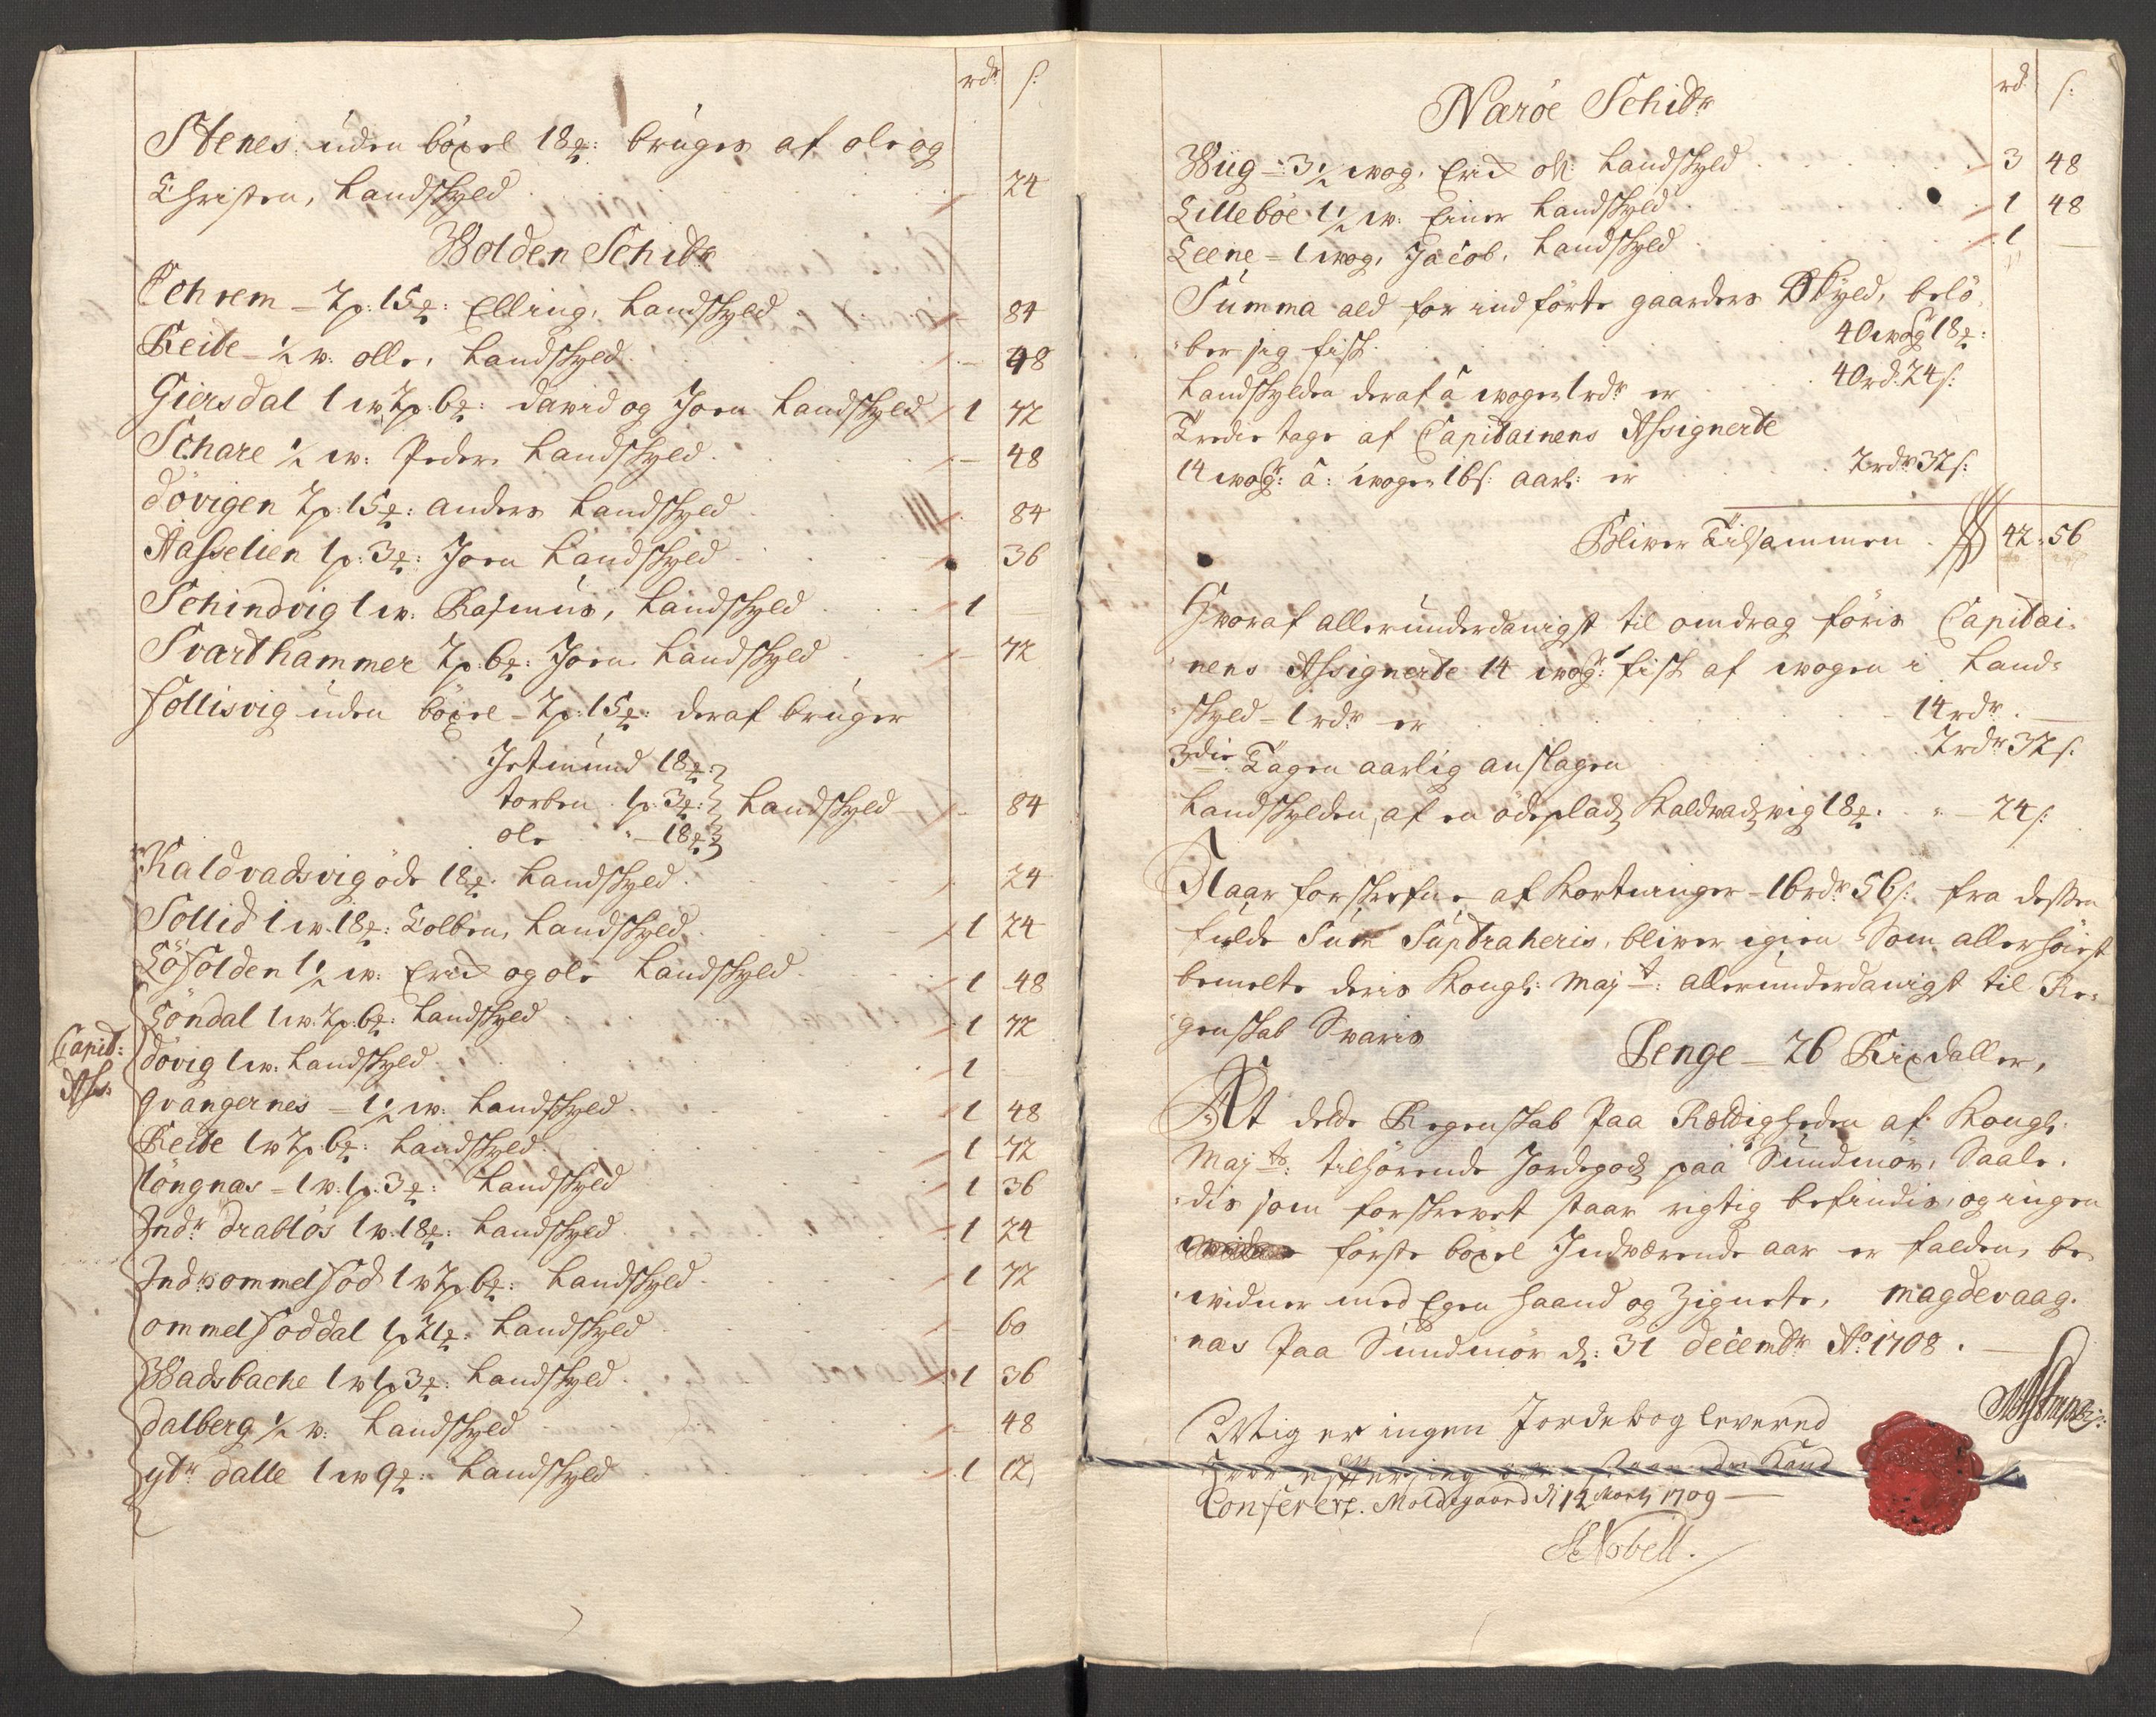 rdr s:
Stenes uden böxel 18 ℔: bruges af ole og
Christen, Landskyld 24
Wolden Schibr
Echrem - 2 p: 15 ℔: Elling, Landskyld 84
Reite - ½ w: olle, Landskyld - 48
Giersdal 1 w 2 p: 6 ℔: david og Joen Landskyld 1 72
Schare ½ w: Peder Landskyld - 48
dövigen 2 p: 15 ℔: anders Landskyld 84
Aasselien 1 p: 3 ℔: Joen Landskyld 36
Schindvig 1 w: Rasmus, Landskyld 1
Svarthammer 2 p: 6 ℔: Joen Landskyld - 72
follisvig uden böxel - 2 p: 15 ℔: deraf bruger
Jetmund 18 ℔:
torben 1 p: 3 ℔: Landskyld - 84
ole - 18 ℔:
Kaldvadsvig öde 18 ℔: Landskyld 24
Sollid 1 w: 18 ℔: Colben, Landskyld 1 24
Löfolden 1½ w: Erich og ole Landskyld 1 48
Capit:
Ass:
Löndal 1 w: 2 p: 6 ℔: Landskyld 1 72
dövig 1 w: Landskyld 1
qvangernes - 1½ w: Landskyld 1 48
Reite 1 w 2 p: 6 ℔: Landskyld 1 72
löngnas - 1 w: 1 p: 3 ℔: Landskyld 1 36
Indr drablös 1 w: 18 ℔: Landskyld 1 24
Indr ommelfod 1 w 2 p 6 ℔: Landskyld 1 72
ommelfoddal 1 p 21 ℔: Landskyld 60
Wadsbache 1 w 1 p 3 ℔: Landskyld 1 36
dalberg ½ w: Landskyld 48
ytr dalle 1 w 9 ℔: Landskyld 1 12
rd s:
Naröe Schibr
Wiig - 3½ wog: Erich Landskyld 3 48
Lilleböe 1½ w: Einer Landskyld 1 48
Leene - 1 wog, Jacob, Landskyld 1
Summa ald for indförte gaarders Skyld, belö-
ber sig fisk 40 wog 18 ℔:
Landskylden deraf a wogen 1 rdr er 40 rd: 24 s:
Tredie tage af Capitainens Assignerte
14 wog: a: wogen 16 s: aarl: er 2 rdr 32 s:
Bliver Tilsammen 42: 56
Hvoraf allerunderdanigst til omdrag föris Capitai-
nens Assignerte 14 wog: fisk af wogen i Land-
skyld - 1 rdr er 14 rdr -
3die Tagen aarlig anslagen 2 rdr 32 s:
Landskylden, af en ödeplads Kaldvadsvig 18 ℔: - 24 s:
Naar forskrefne afkortninger - 16 rdr 56 s: fra dessen
fulde Sum Subtraheris, bliver igien Som allerhöist
bemelte deris Kongl: Mayt: allerunderdanigst til Re-
genskab Svaris
Penge - 26 Rixdaller,
At dette Regenskab Paa Rettigheden af Kongl:
Mayts: tilhörende Jordegods paa Sundmör, Saale-
dis som forskrevet staar rigtig befindis, og ingen
förste böxel Indværende aar er falden, be-
widner med Egen haand og Zignete, magdevaag-
nas Paa Sundmör d: 31 decembr Ao 1708.
Mig er ingen Jordebog levered
Hvor effter jeg
Conferere. Moldegaard d: 12 Marti 1709